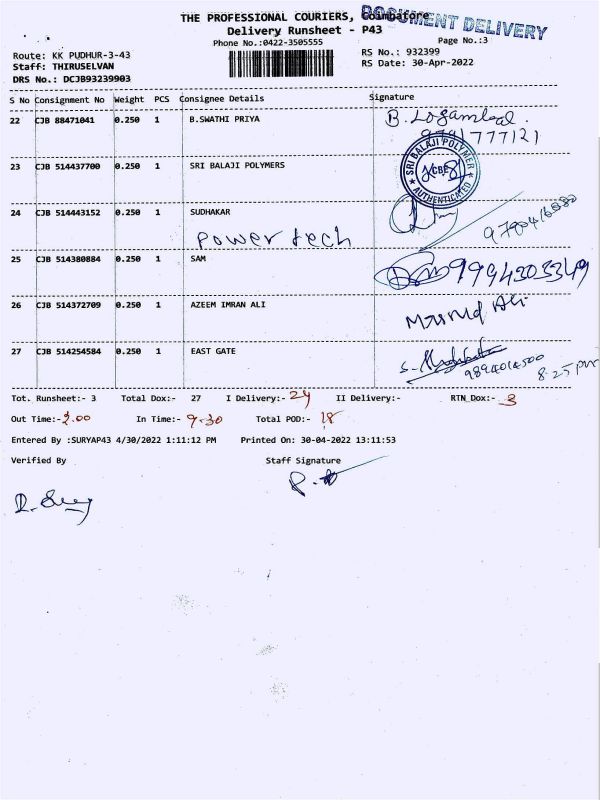 THE PROFESSIONAL COURIERS, Coimbatore
DOCUMENT DELIVERY
Delivery Runsheet - P43
Phone No.:0422-3505555
Page No.:3
Route: KK PUDHUR-3-43
RS No.: 932399
Staff: THIRUSELVAN
RS Date: 30-Apr-2022
DRS No.: DCJB93239903
S No Consignment No Weight PCS Consignee Details Signature
22 CJB 88471041 0.250 1 B.SWATHI PRIYA B. Logambal
9791777121
23 CJB 514437700 0.250 1 SRI BALAJI POLYMERS
SRI BALAJI POLYMER
CBE
AUTHENTICATED
24 CJB 514443152 0.250 1 SUDHAKAR
Power tech
25 CJB 514380884 0.250 1 SAM 9994303349
26 CJB 514372709 0.250 1 AZEEM IMRAN ALI Masud Ali
27 CJB 514254584 0.250 1 EAST GATE
9894014500
8.25 pm
Tot. Runsheet:- 3 Total Dox:- 27 I Delivery:- 24 II Delivery:- RTN_Dox:- 3
Out Time:- 2.00 In Time:- 9.30 Total POD:- 18
Entered By :SURYAP43 4/30/2022 1:11:12 PM Printed On: 30-04-2022 13:11:53
Verified By Staff Signature